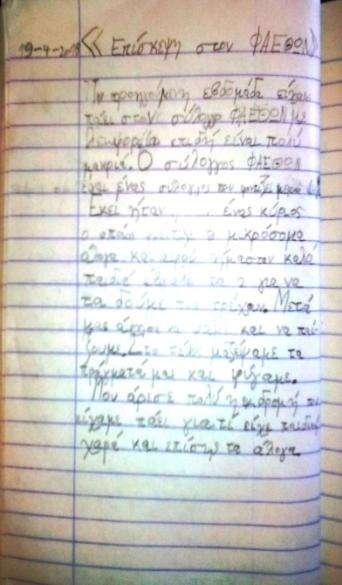 19-4-2018 «Επίσκεψη στον ΦΑΕΘΩΝ»
Τη προηγούμενη εβδομάδα είχαμε
πάει στον σύλλογο ΦΑΕΘΩΝ με
λεωφορείο επειδή είναι πολύ
μακριά. Ο σύλλογος ΦΑΕΘΩΝ
είναι ένας σύλλογος που
Εκεί ήταν ένας κύριος
ο οποίος μικρόσωμα
άλογα και αφού ήμασταν καλά
παιδιά για να
τα δούμε να τρέχουν. Μετά
μας άφησε να πάμε και να παί-
ξουμε. Στο τέλος μαζέψαμε τα
πράγματα μας και φύγαμε.
Μου άρεσε πολύ η εκδρομή που
είχαμε πάει γιατί είχε παιδική
χαρά και επίσης τα άλογα